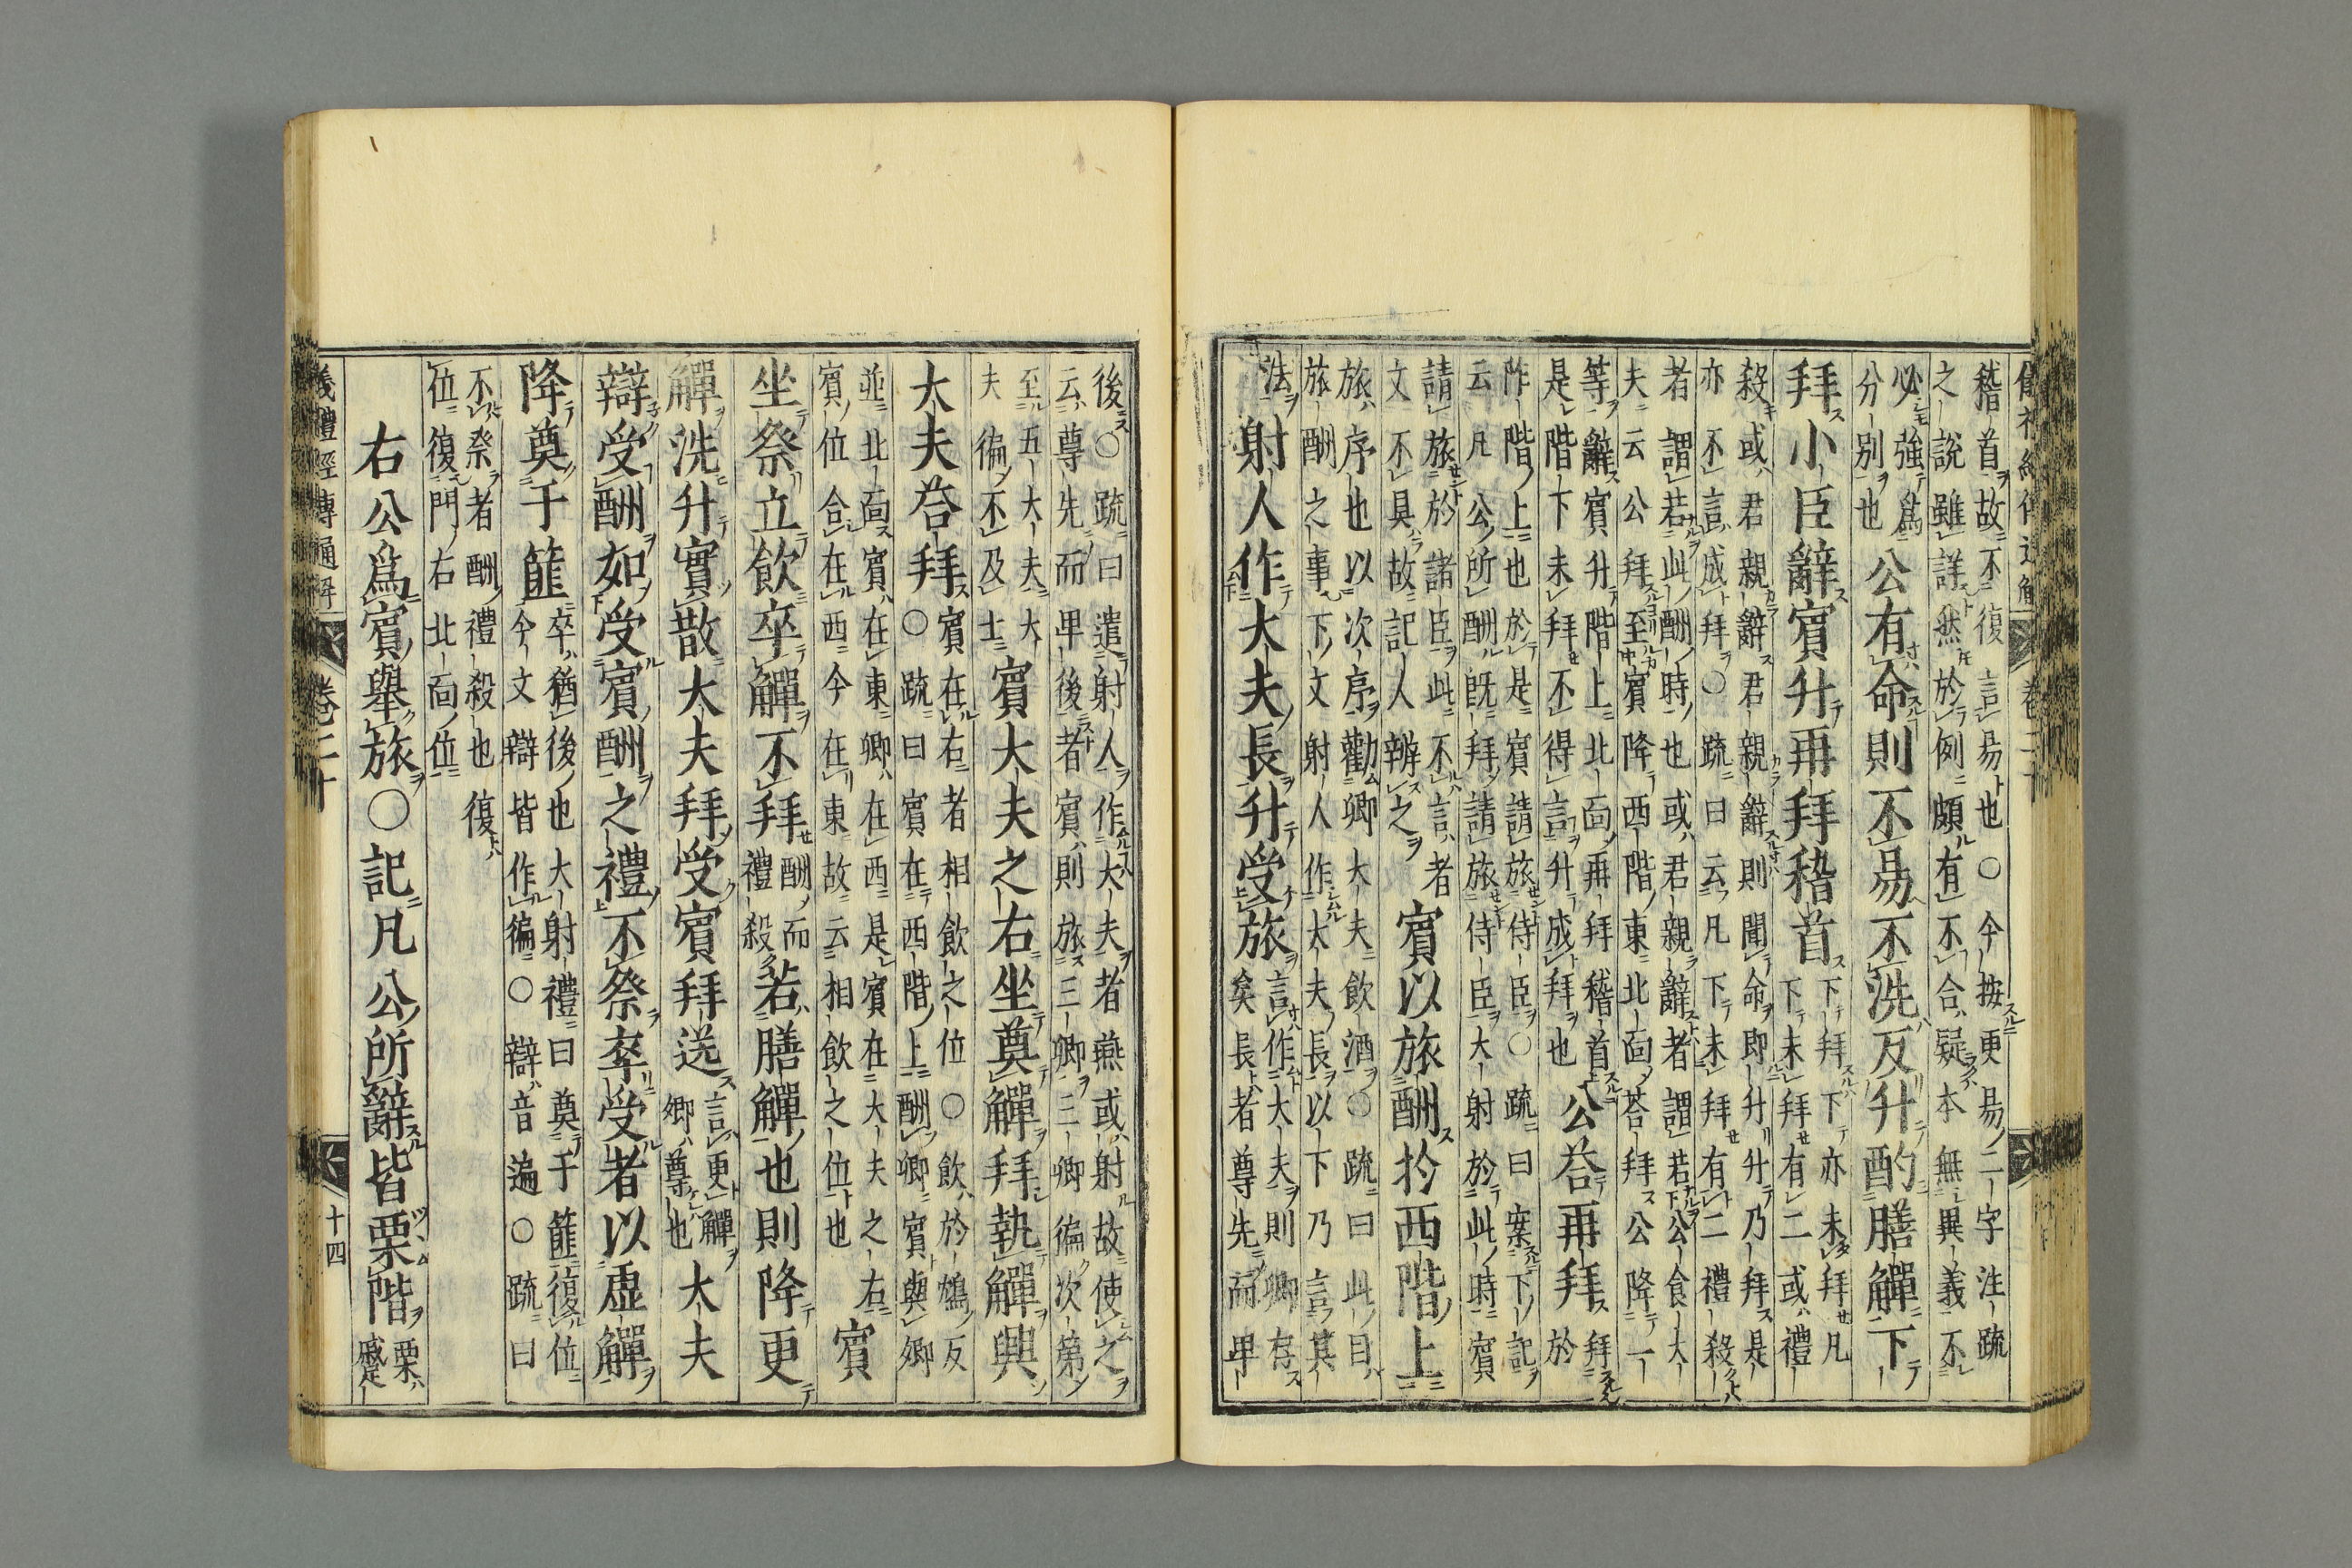 稽首故不復言易也○今按更易二字注疏
之說雖詳然於例頗有不合疑本無異義不
必強爲
分別也公有命則不易不洗反升酌膳觶下
拜小臣辭賓升再拜稽首下拜下亦未拜凡
下未拜有二或禮
殺或君親辭君親辭則聞命即升升乃拜是
亦不言成拜○疏曰云凡下未拜有二禮殺
者謂若此酬時也或君親辭者謂若公食大
夫云公拜至賓降西階東北面荅拜公降一
等辭賓升階上北面再拜稽首公荅再拜拜
是階下未拜不得言升成拜也於
阼階上也於是賓請旅侍臣○疏曰案下記
云凡公所酬旣拜請旅侍臣大射於此時賓
請旅於諸臣此不言者賓以旅酬於西階上
文不具故記人辨之
旅序也以次序勸卿大夫飲酒○疏曰此目
旅酬之事下文射人作大夫長以下乃言其
法射人作大夫長升受旅言作大夫則卿存
矣長者尊先而卑
後○疏曰遣射人作大夫者燕或射故使之
云尊先而卑後者賓則旅三卿三卿徧次第
至五大夫大
夫徧不及士賓大夫之右坐奠觶拜執觶興
大夫荅拜賓在右者相飲之位○飲於鴆反
○疏曰賓在西階上酬卿賓與卿
並北面賓在東卿在西是賓在大夫之右賓
賓位合在西今在東故云相飲之位也
坐祭立飲卒觶不拜酬而
禮殺若膳觶也則降更
觶洗升實散大夫拜受賓拜送言更觶
卿尊也大夫
辯受酬如受賓酬之禮不祭卒受者以虛觶
降奠于篚卒猶後也大射禮曰奠于篚復位
今文辯皆作徧○辯音遍○疏曰
不祭者酬禮殺也復
位復門右北面位
右公爲賓舉旅○記凡公所辭皆栗階栗
蹙
儀禮經傳通解 卷二十 十四